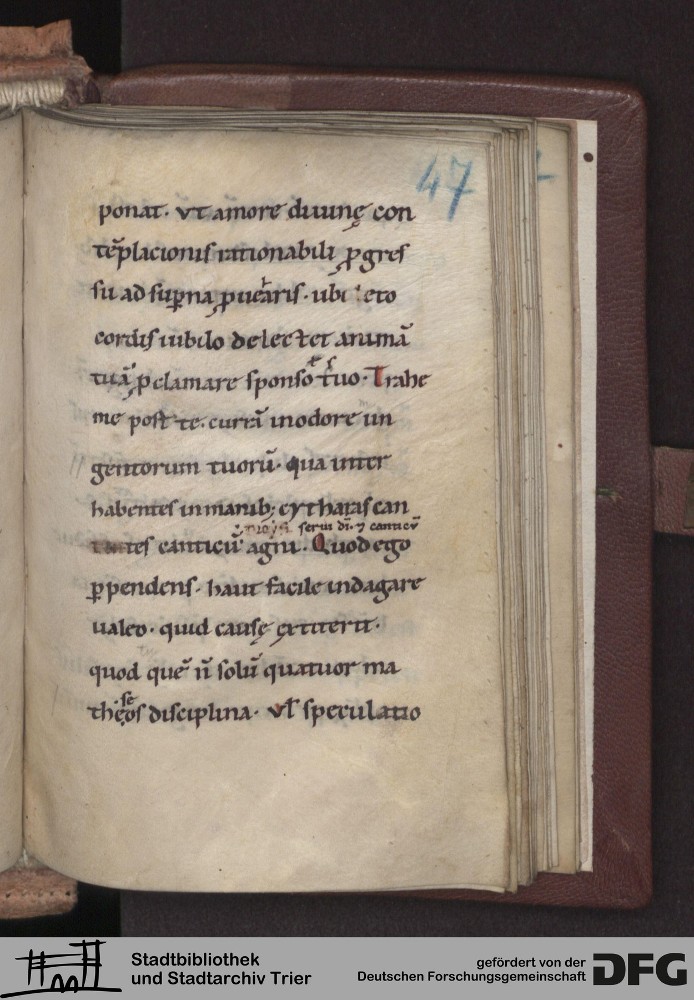 47
ponat. ut amore diuinę con
tẽplacionis rationabili ꝓgres
su ad sup̱na ꝓuearis. ubi leto
cordis iubilo delectet animã
tuã ꝓclamare sponso tuo. Trahe
me post te. currã in odore un
gentorum tuorũ. qua inter
habentes in manib; cytharas can
moysi serui dĩ. ⁊ canticũ
tantes canticũ agni. Quod ego
ꝑpendens. haut facile indagare
ualeo. quid causę extiterit.
quod quẽ ñ solũ quatuor ma
se
theos disciplina. ul̃ speculatio
Stadtbibliothek
und Stadtarchiv Trier
gefördert von der
Deutschen Forschungsgemeinschaft
DFG